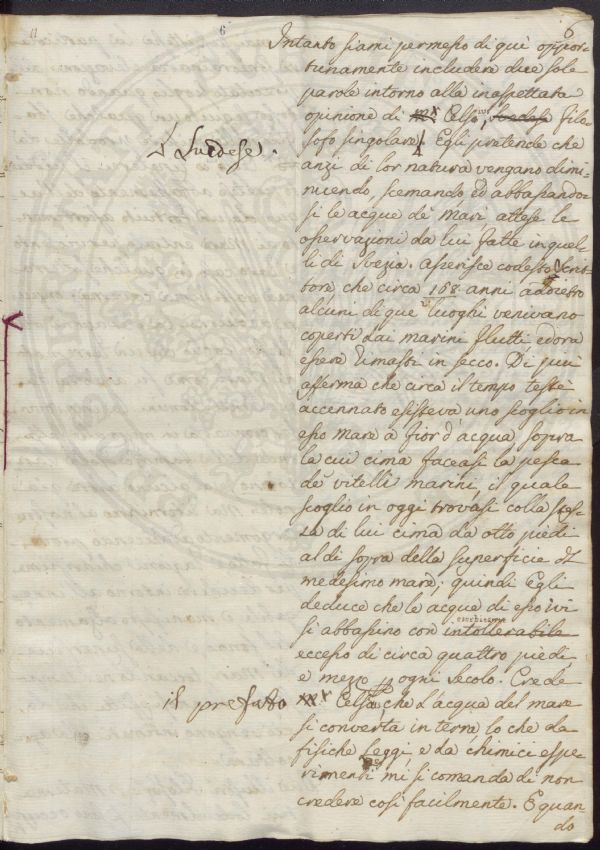 11 6 6
Intanto siami permesso di quì oppor-
tunamente includere due sole
parole intorno alla inaspettata
opinione di Celso, Filo-
sofo singolare. Egli pretende che
Svedese.
anzi di lor natura vengano dimi-
nuendo, scemando ed abbassando-
si le acque de' Mari, attese le
osservazioni da lui fatte in quel-
li di Svezia. Asserisce codesto Scrit-
tore, che circa 168. anni addietro
alcuni di que' luoghi venivano
coperti dai marini flutti ed ora
essere rimasti in secco. Di più
afferma che circa il tempo testè
accennato esisteva uno scoglio in
esso mare à fior d'acqua, sopra
la cui cima faceasi la pesca
de' vitelli marini, il quale
scoglio in oggi trovasi colla stes-
sa di lui cima da otto piedi
al di sopra della superficie del
medesimo mare; quindi Egli
deduce che le acque di esso ivi
si abbassino con intollerabile
eccesso di circa quattro piedi
e mezzo ogni secolo. Crede
il prefato Celso, che l'acqua del mare
si converta in terra, lo che da
fisiche leggi, e da chimici espe-
rimenti mi si comanda di non
credere così facilmente. E quan-
do